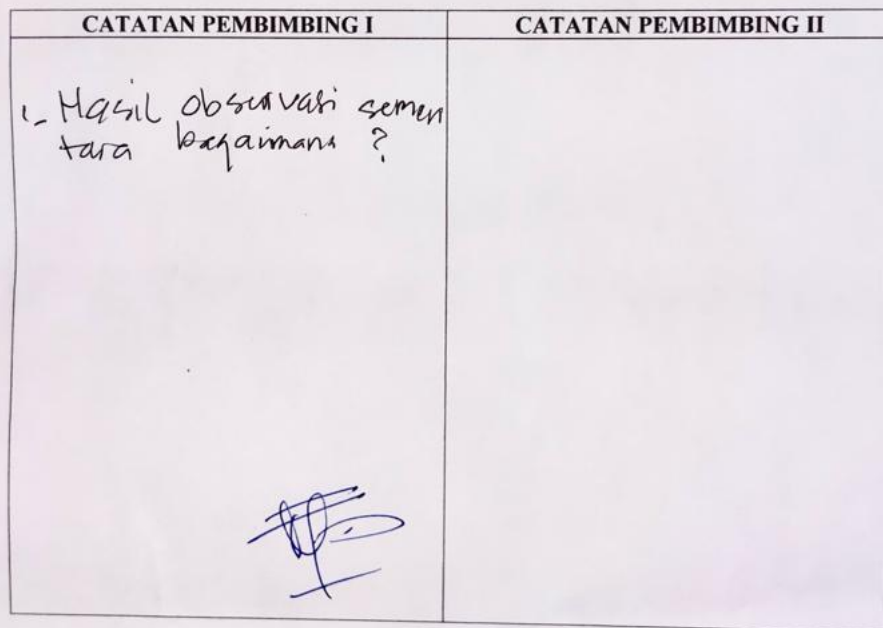 CATATAN PEMBIMBING I
CATATAN PEMBIMBING II
1- Hasil observasi semen
tara bagaimana ?